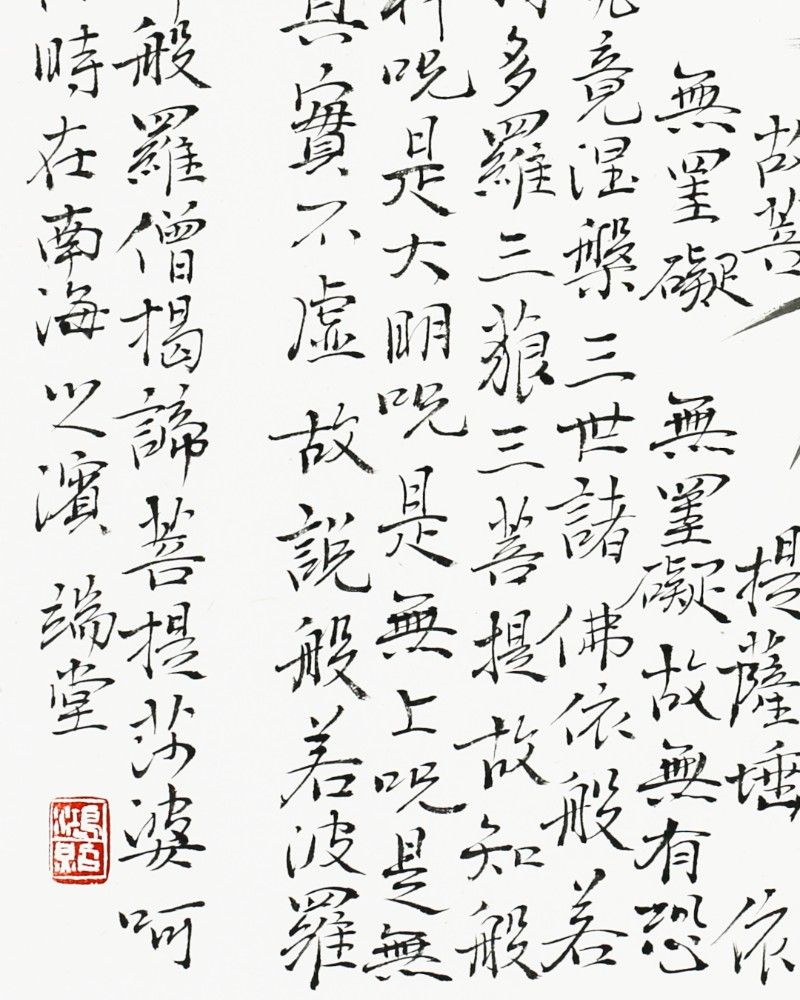 故菩 提薩埵 依
無罣礙 無罣礙故無有恐
竟涅槃三世諸佛依般若
多羅三藐三菩提故知般
呪是大明呪是無上呪是無
真實不虛故說般若波羅
般羅僧揭諦菩提莎婆呵
時在南海之濱 端堂